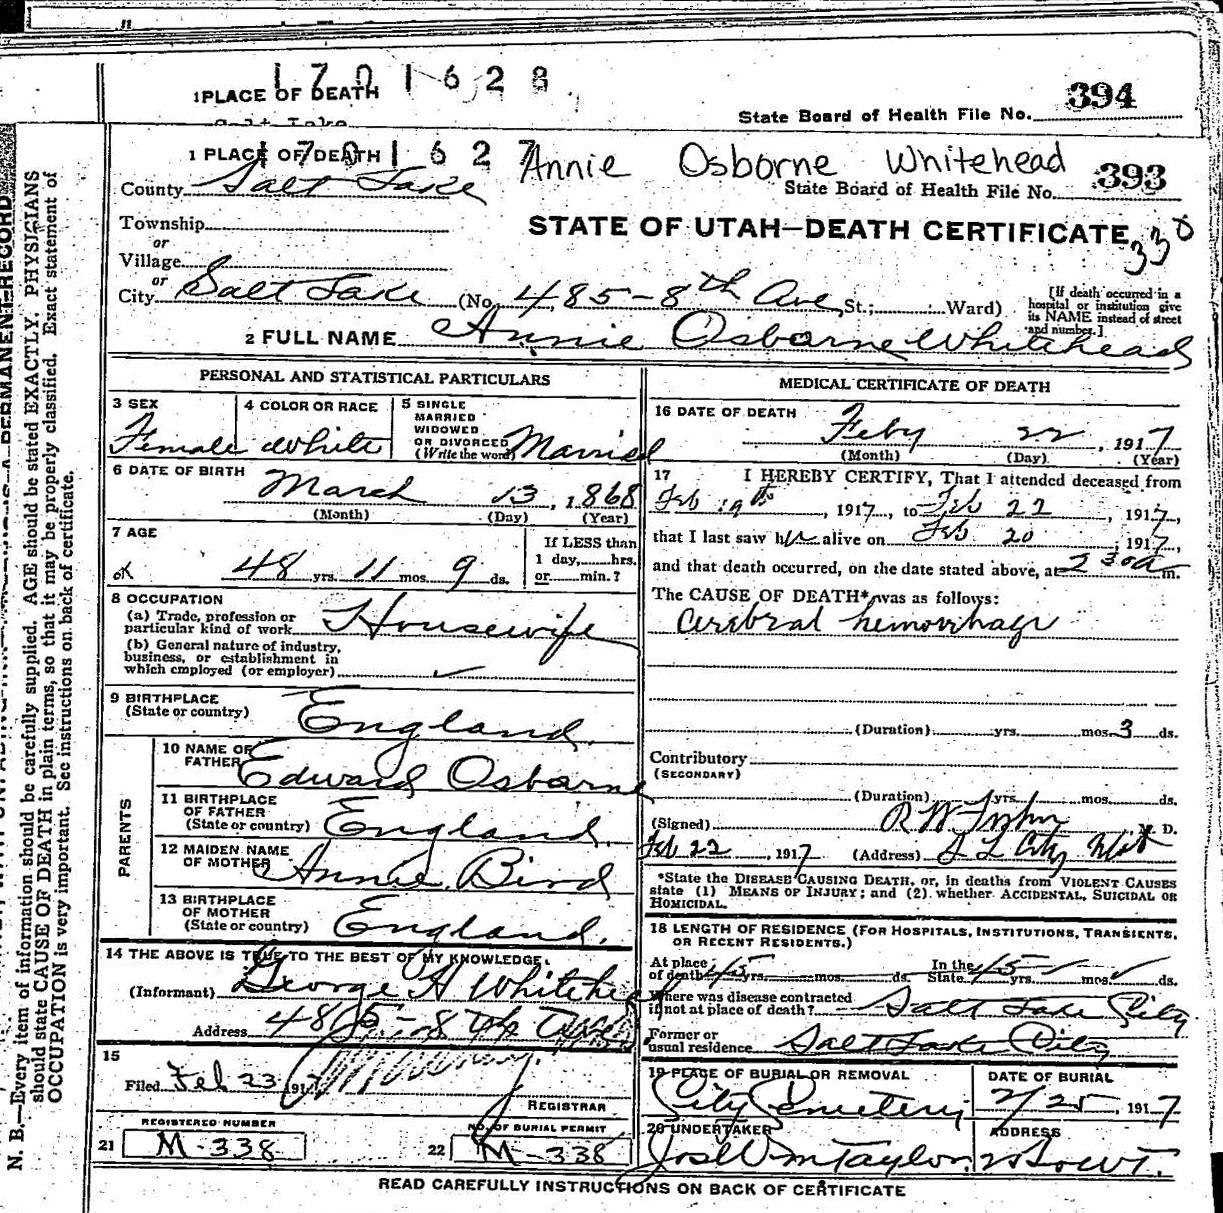 1701628
1 PLACE OF DEATH
State Board of Health File No. 394
Salt Lake
1 PLACE OF DEATH
1701627
Annie Osborne Whitehead
County Salt Lake
State Board of Health File No. 393
Township
STATE OF UTAH—DEATH CERTIFICATE
330
or
Village
or
City Salt Lake (No. 485-8th Ave St.; Ward)
[If death occurred in a hospital or institution give its NAME instead of street and number.]
2 FULL NAME Annie Osborne Whitehead
PERSONAL AND STATISTICAL PARTICULARS
3 SEX Female
4 COLOR OR RACE White
5 SINGLE MARRIED WIDOWED OR DIVORCED (Write the word) Married
6 DATE OF BIRTH
March 13, 1868
(Month) (Day) (Year)
7 AGE
If LESS than 1 day, hrs. or min.?
ok 48 yrs. 11 mos. 9 ds.
8 OCCUPATION
(a) Trade, profession or particular kind of work Housewife
(b) General nature of industry, business, or establishment in which employed (or employer) ✓
9 BIRTHPLACE
(State or country) England
PARENTS
10 NAME OF FATHER Edward Osborne
11 BIRTHPLACE OF FATHER (State or country) England
12 MAIDEN NAME OF MOTHER Annie Bird
13 BIRTHPLACE OF MOTHER (State or country) England.
14 THE ABOVE IS TRUE TO THE BEST OF MY KNOWLEDGE.
(Informant) George H Whitehead
Address 485-8th Ave
15
Filed Feb 23 191
REGISTRAR
REGISTERED NUMBER
21 M-338
NO. OF BURIAL PERMIT
22 M-338
MEDICAL CERTIFICATE OF DEATH
16 DATE OF DEATH
Feby 22, 1917
(Month) (Day) (Year)
17 I HEREBY CERTIFY, That I attended deceased from
Feb 19th, 1917, to Feb 22, 1917,
that I last saw her alive on Feb 20, 1917,
and that death occurred, on the date stated above, at 2 30 a m.
The CAUSE OF DEATH* was as follows:
Cerebral hemorrhage
(Duration) yrs. mos. 3 ds.
Contributory
(SECONDARY)
(Duration) yrs. mos. ds.
(Signed) R W M. D.
Feb 22, 1917 (Address) S L City Utah
*State the DISEASE CAUSING DEATH, or, in deaths from VIOLENT CAUSES
state (1) MEANS OF INJURY; and (2) whether ACCIDENTAL, SUICIDAL OR
HOMICIDAL.
18 LENGTH OF RESIDENCE (FOR HOSPITALS, INSTITUTIONS, TRANSIENTS,
OR RECENT RESIDENTS.)
At place of death 45 yrs. mos. ds. In the State 45 yrs. mos. ds.
Where was disease contracted if not at place of death? Salt Lake City
Former or usual residence Salt Lake City
19 PLACE OF BURIAL OR REMOVAL
City Cemetery
DATE OF BURIAL
2/25, 1917
20 UNDERTAKER
Jos Wm Taylor
ADDRESS
READ CAREFULLY INSTRUCTIONS ON BACK OF CERTIFICATE
N. B.—Every item of information should be carefully supplied. AGE should be stated EXACTLY. PHYSICIANS
should state CAUSE OF DEATH in plain terms, so that it may be properly classified. Exact statement of
OCCUPATION is very important. See instructions on back of certificate.
PERMANENT RECORD